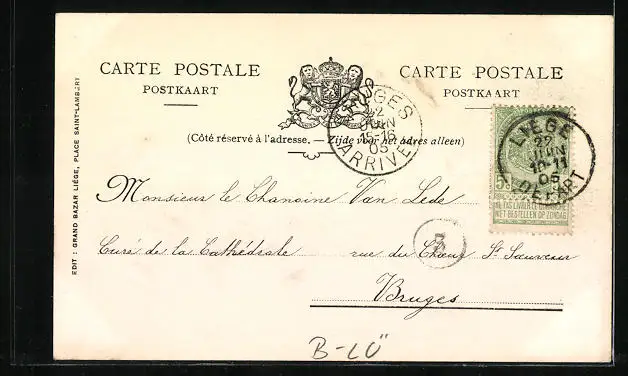 CARTE POSTALE
POSTKAART
CARTE POSTALE
POSTKAART
(Côté réservé à l'adresse. — Zijde voor het adres alleen)
BRUGES
22
JUIN
15-16
05
ARRIVEE
LIÉGE
22
JUIN
10-11
05
DEPART
NE PAS LIVRER LE DIMANCHE
NIET BESTELLEN OP ZONDAG
Monsieur le Chanoine Van Lede
Curé de la Cathédrale rue du Chœur St Sauveur
Bruges
EDIT : GRAND BAZAR LIÉGE, PLACE SAINT-LAMBERT
B-LÜ